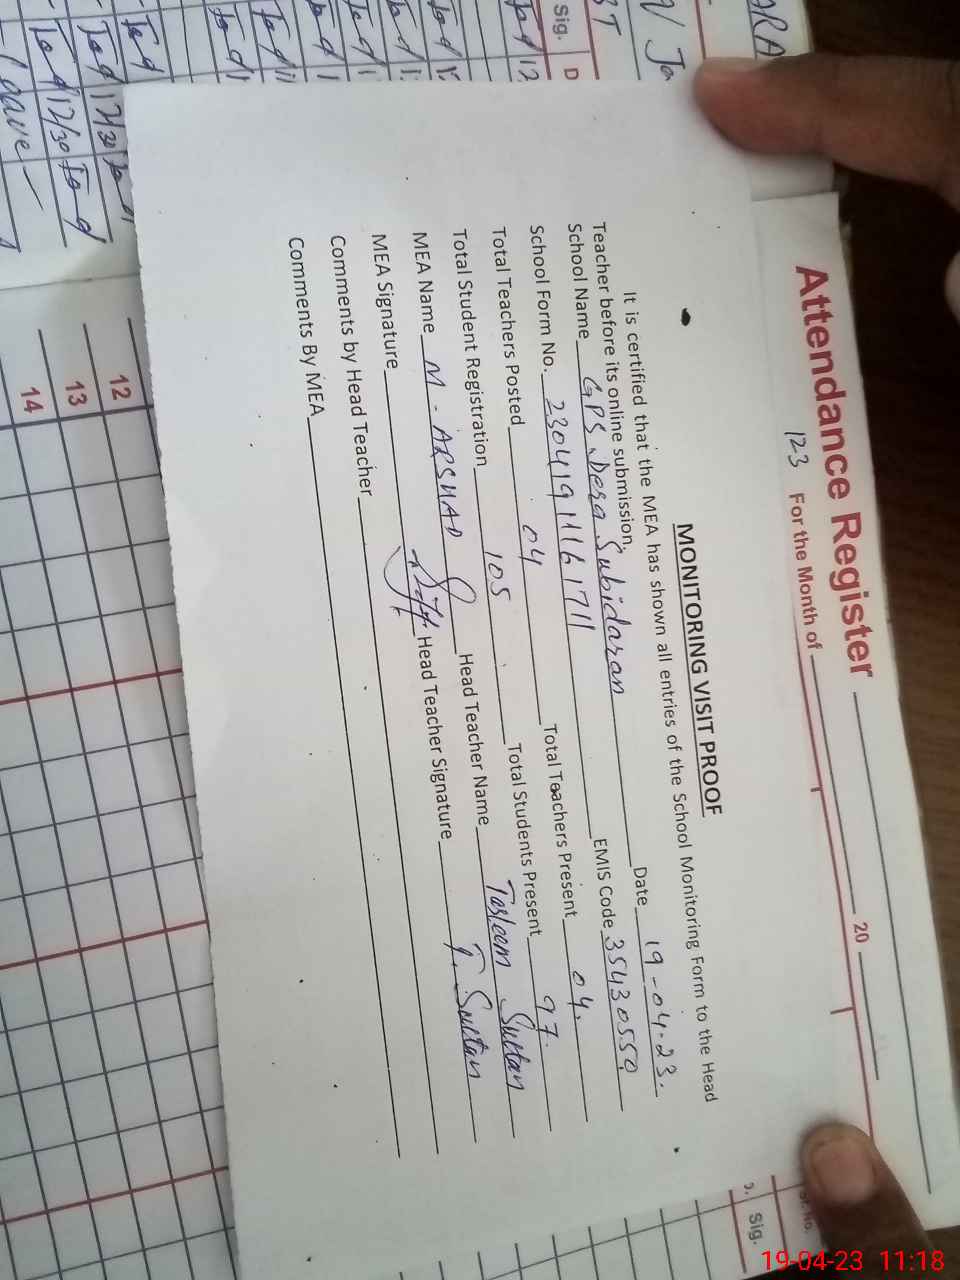 Attendance Register
123 For the Month of 20
MONITORING VISIT PROOF
It is certified that the MEA has shown all entries of the School Monitoring Form to the Head
Teacher before its online submission.
School Name GPS Dera Subidaran Date 19-04-23.
School Form No. 2304191161711 EMIS Code 35430550
Total Teachers Posted 04 Total Teachers Present 04.
Total Student Registration 105 Total Students Present 97.
MEA Name M-ARSHAD Head Teacher Name Tasleem Sultan
MEA Signature Head Teacher Signature T. Sultan
Comments by Head Teacher
Comments By MEA
12
13
14
Sig. D
Leave
Sig.
19-04-23 11:18